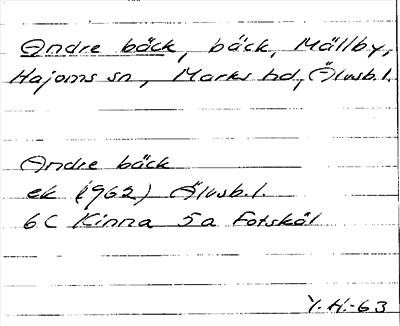 Andre bäck, bäck, Mällby,
Hajoms sn, Marks hd, Älvsb.l.
Andre bäck
ek (1962) Älvsb.l.
6C Kinna 5a Fotskäl
Y.H.-63